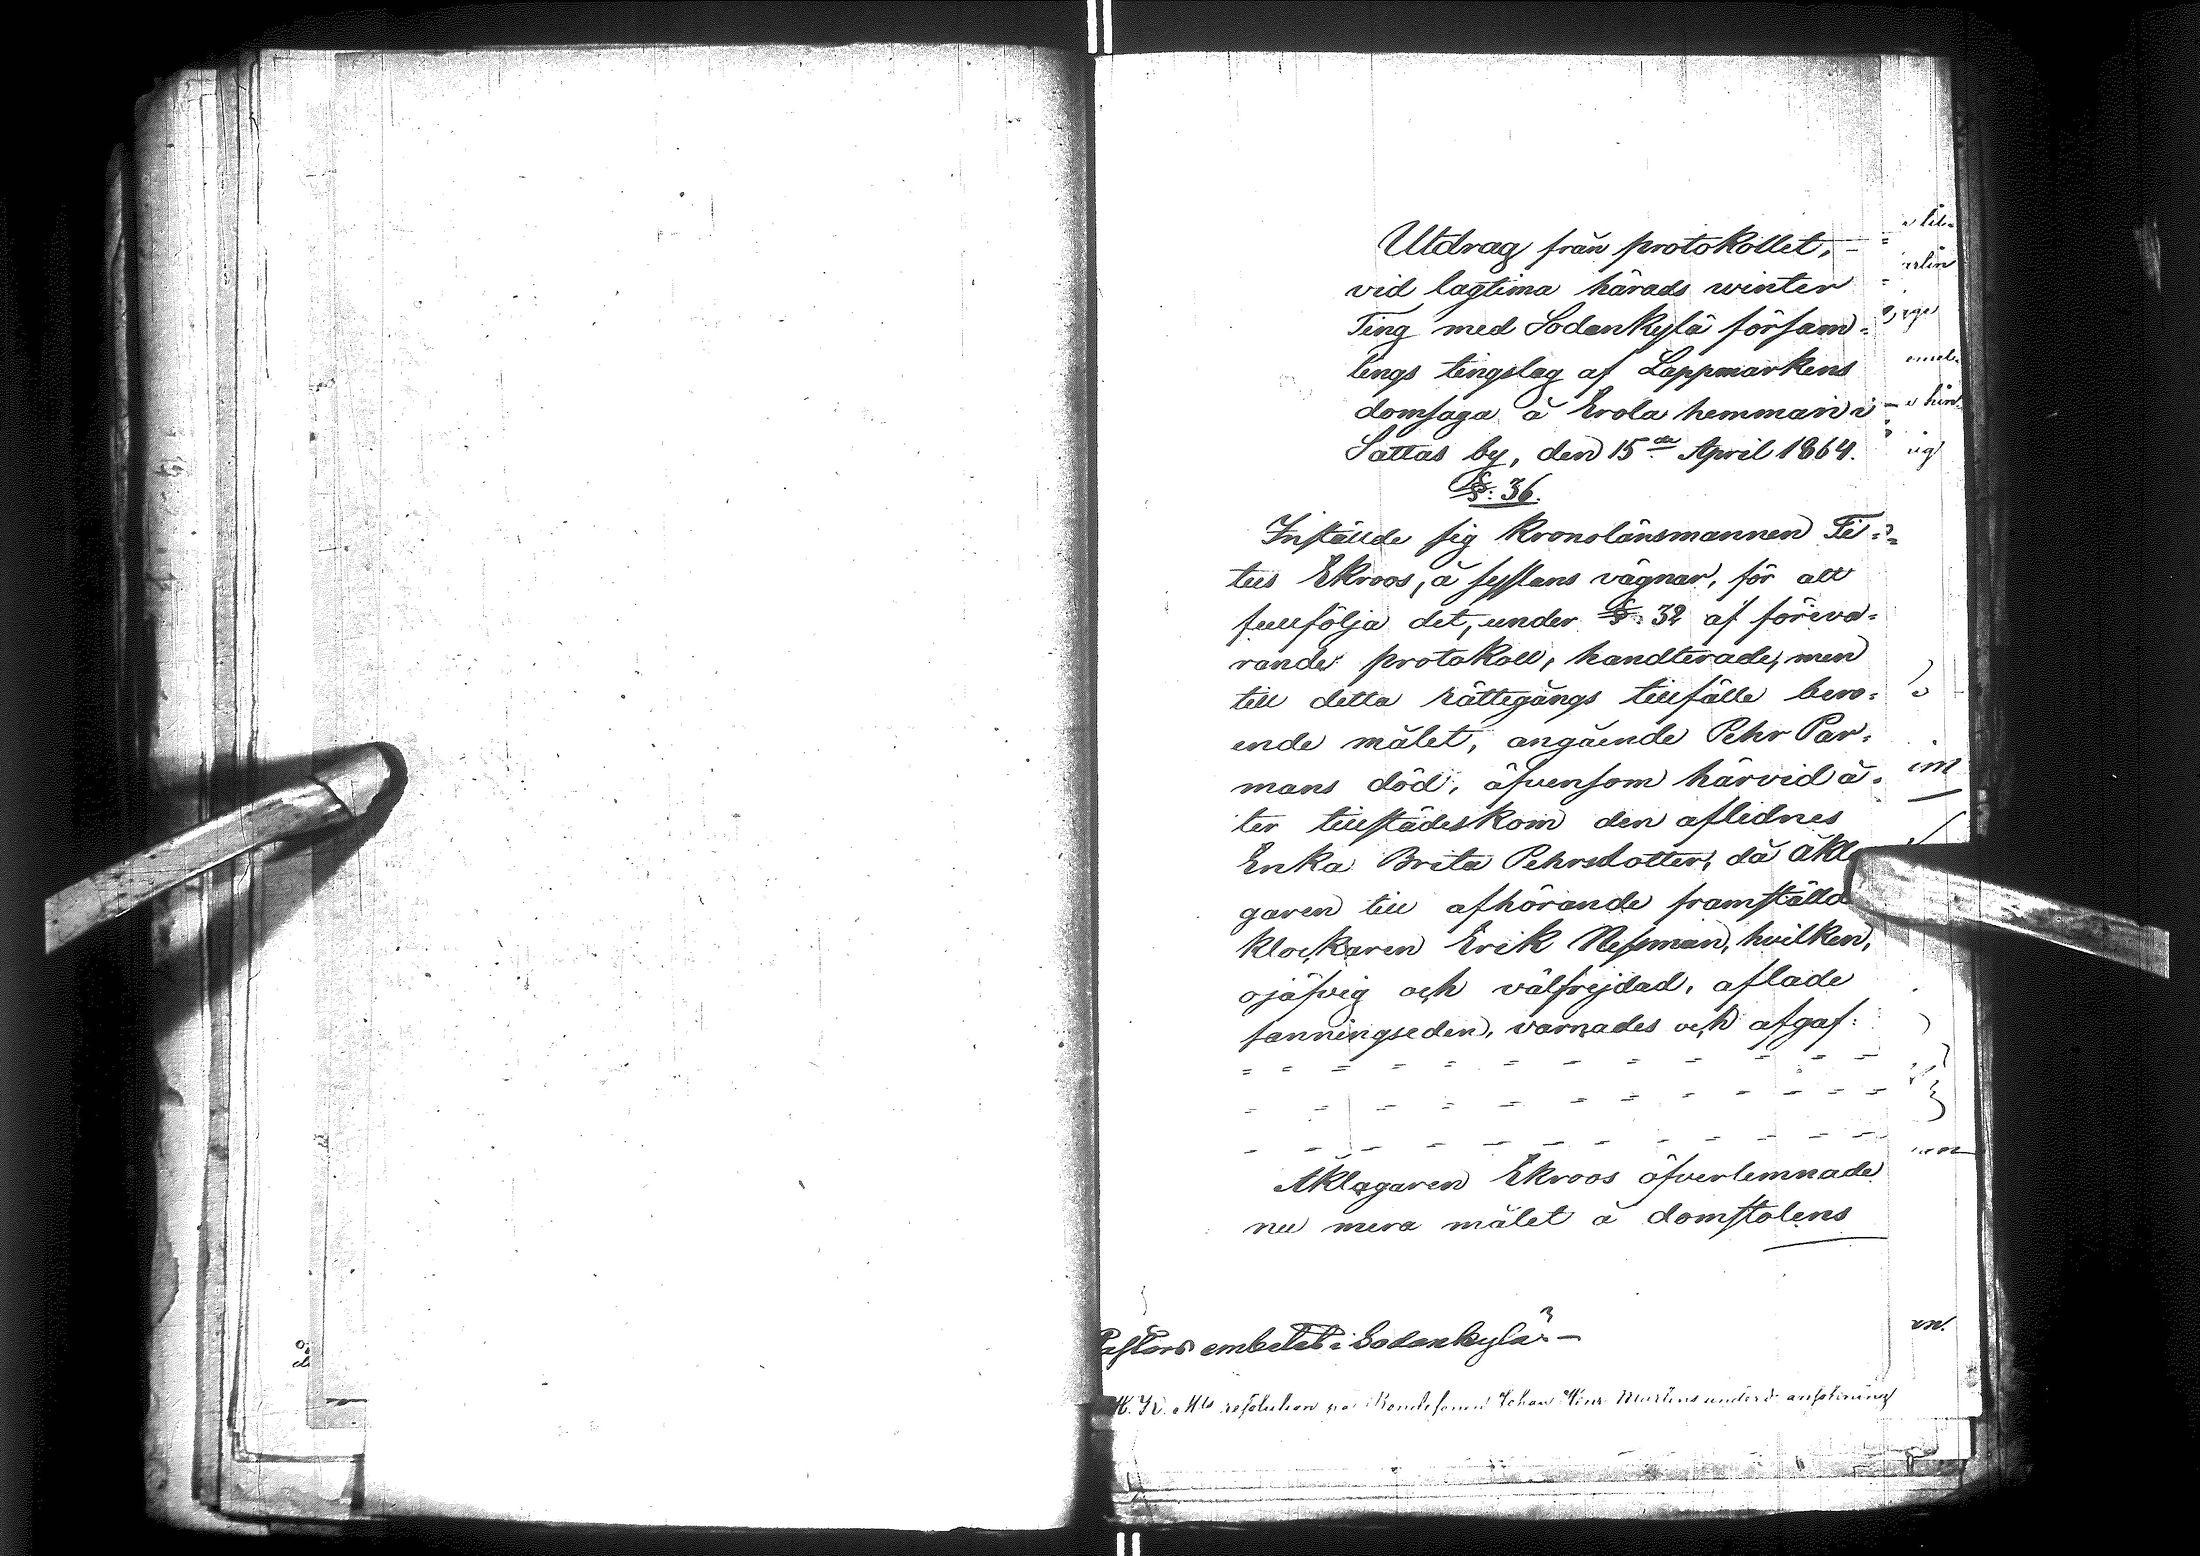 Utdrag från protokollet,
vid lagtima härads winter
Ting med Sodankylä försam=
lings tingslag af Lappmarkens
domsaga å Erola hemman i
Sattas by, den 15de April 1864.
§: 36.
Inställde sig kronolänsmannen Ti=
tus Ekroos, å sysslans vägnar, för att
fullfölja det, under §: 32 af föreva=
rande protokoll, handterade, men
till detta rättegångs tillfälle bero=
ende målet, angående Pehr Par=
mans död, äfvensom härvid å=
ter tillstädeskom den aflidnes
Enka Brita Pehrsdotter, då åkl
garen till afhörande framställd
klockaren Erik Nessman, hvilken,
ojäfvig och välfrejdad, aflade
sanningseden, varnades och afgaf:
Åklagaren Ekroos öfverlemnade
nu mera målet å domstolens
Pastors embetet i Sodankylä
H. K. Mts resolution på Johan Martens underd. ansökning